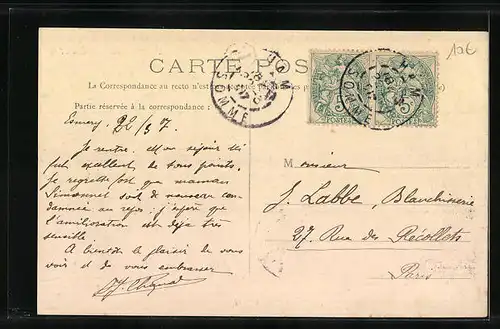 106
CARTE POSTALE
La Correspondance au recto n'est
Partie réservée à la correspondance :
HAM
SOMME
HAM
SOMME
POSTES
POSTES
Esmery. 22/3 7.
Je rentre. Mon séjour ici
fut excellent de tous points.
Je regrette fort que maman
Simonnet soit de nouveau con-
damnée au repos. J'espère que
l'amélioration est déjà très
sensible.
A bientôt le plaisir de vous
voir et de vous embrasser
Monsieur
J. Labbe, Blanchisserie
27. Rue des Récollets
Paris